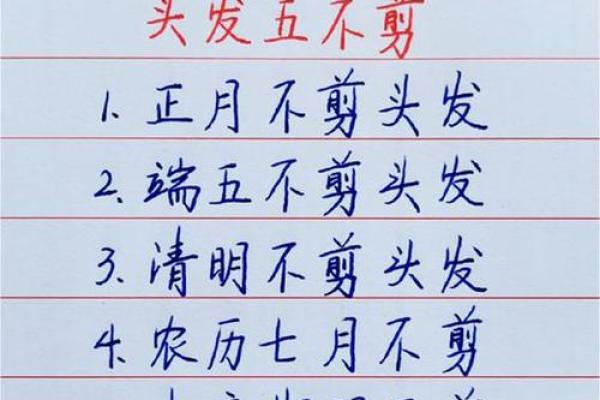 头发五不剪
1、正月不剪头发
2、端五不剪头发
3、清明不剪头发
4、农历七月不剪